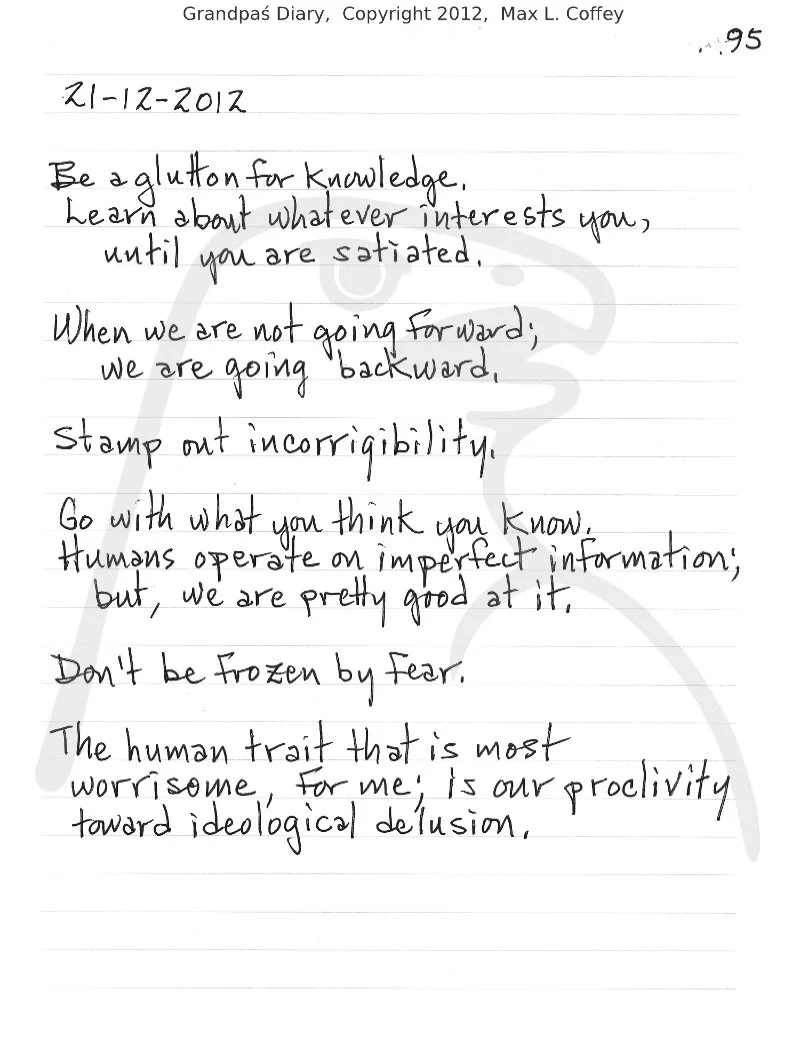 Grandpaś Diary, Copyright 2012, Max L. Coffey
95
21-12-2012
Be a glutton for knowledge.
Learn about whatever interests you,
until you are satiated.
When we are not going forward;
we are going backward.
Stamp out incorrigibility.
Go with what you think you know.
Humans operate on imperfect information;
but, we are pretty good at it.
Don't be frozen by fear.
The human trait that is most
worrisome, for me; is our proclivity
toward ideological delusion.